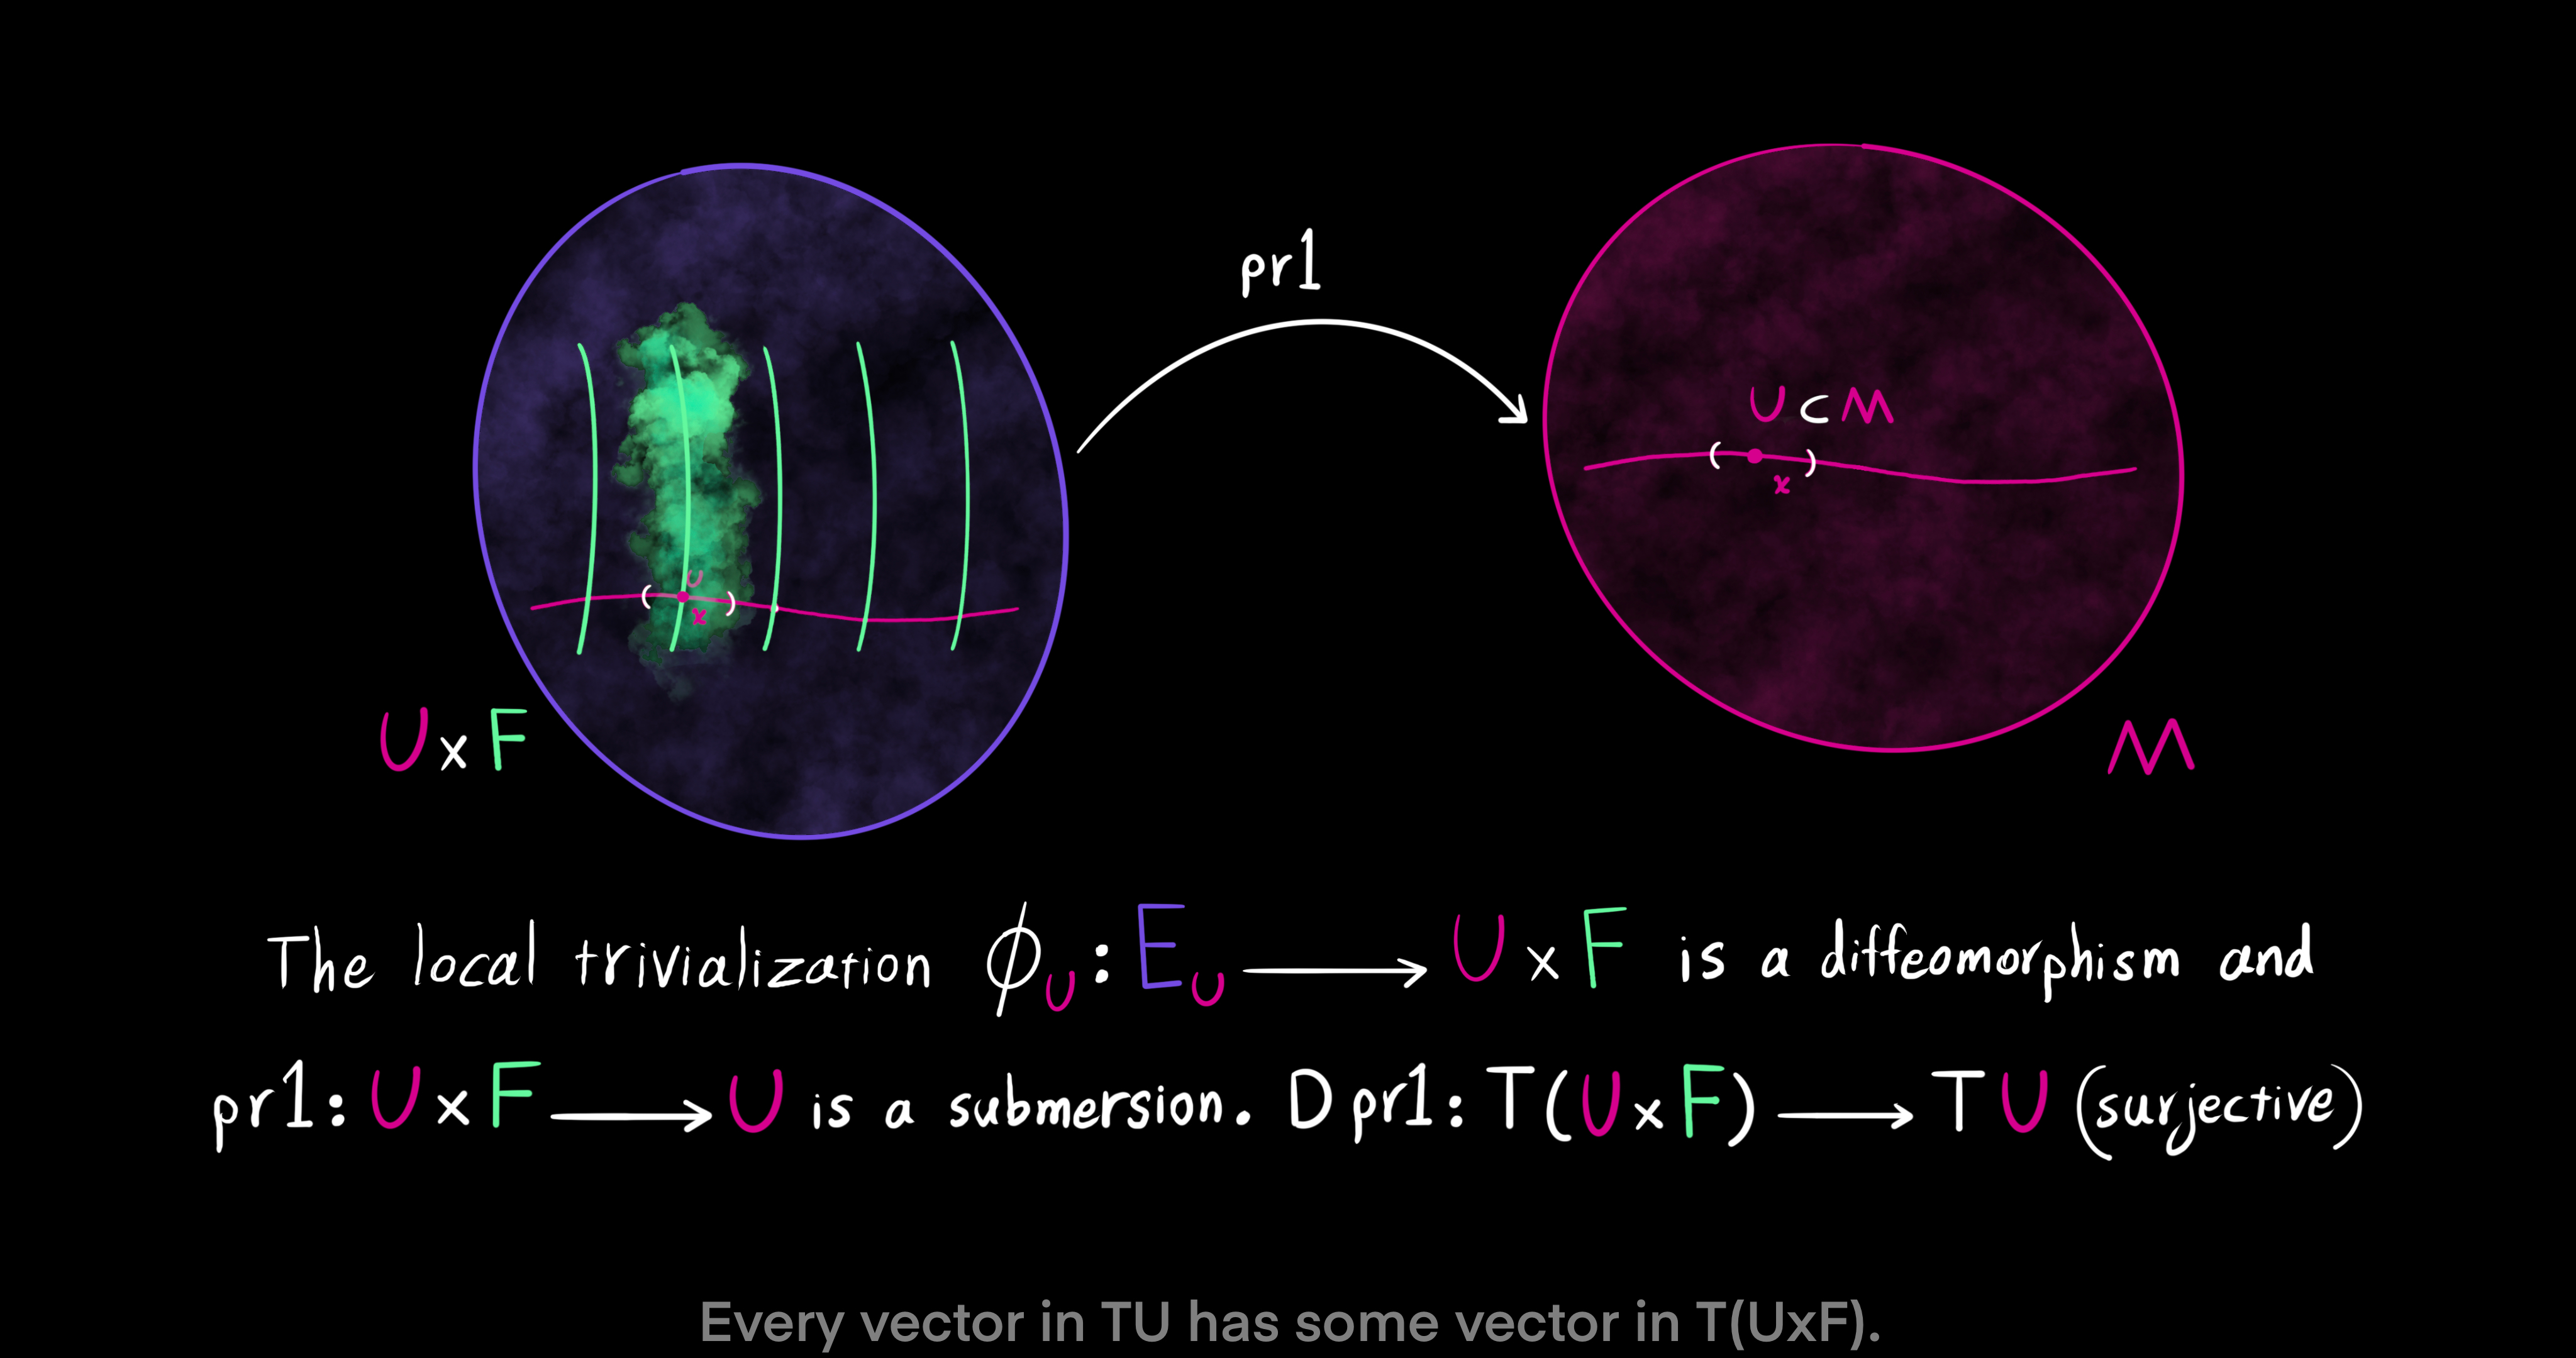 pr1
U ⊂ M
( )
x
U
( )
x
U x F
M
The local trivialization ϕU : EU ⟶ U x F is a diffeomorphism and
pr1: U x F ⟶ U is a submersion. D pr1: T(U x F) ⟶ TU (surjective)
Every vector in TU has some vector in T(UxF).